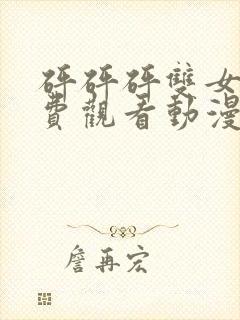 砰砰砰雙女
費觀看動漫
詹再宏